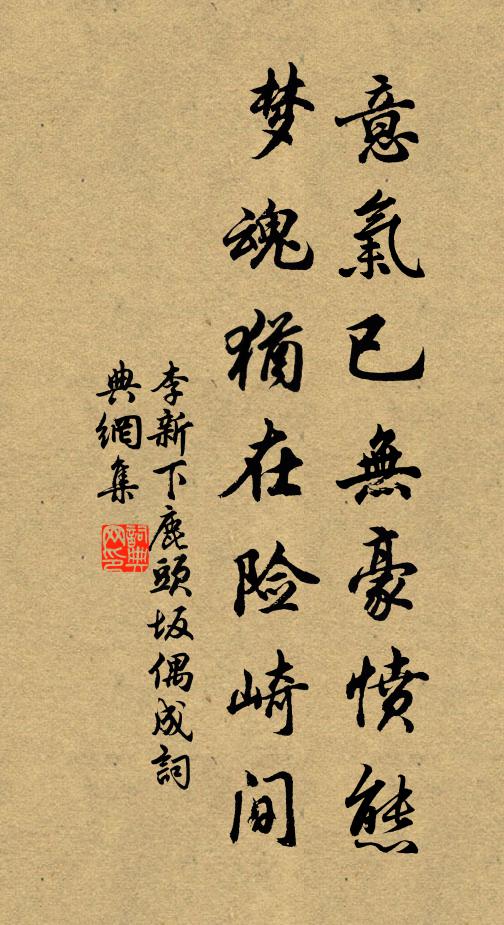 意氣已無豪憤態
梦魂猶在险崎间
李新下鹿頭坂偶成詞
典網集
詞典网印